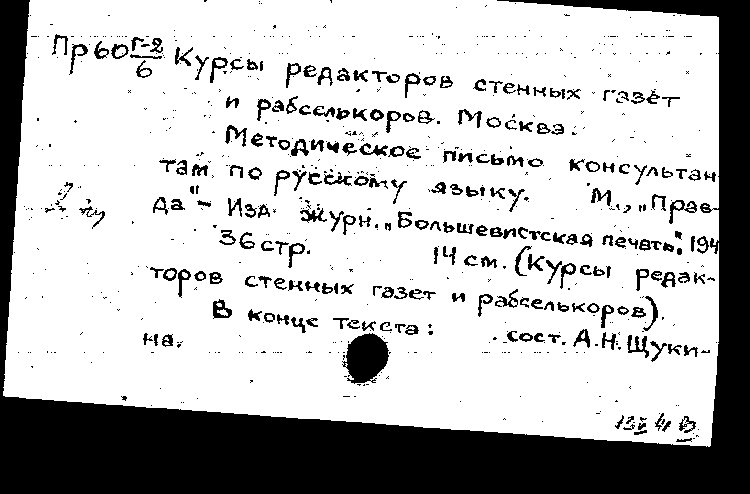 Пр60 Г-2/6 Курсы редакторов стенных газет
и рабселькоров. Москва.
Методическое письмо консультан
там по русскому языку. М., „Прав-
да"- Изд. журн. „Большевистская печать", 194
36 стр. 14 см. (Курсы редак-
торов стенных газет и рабселькоров).
В конце текста: сост. А.Н. Щуки-
на.